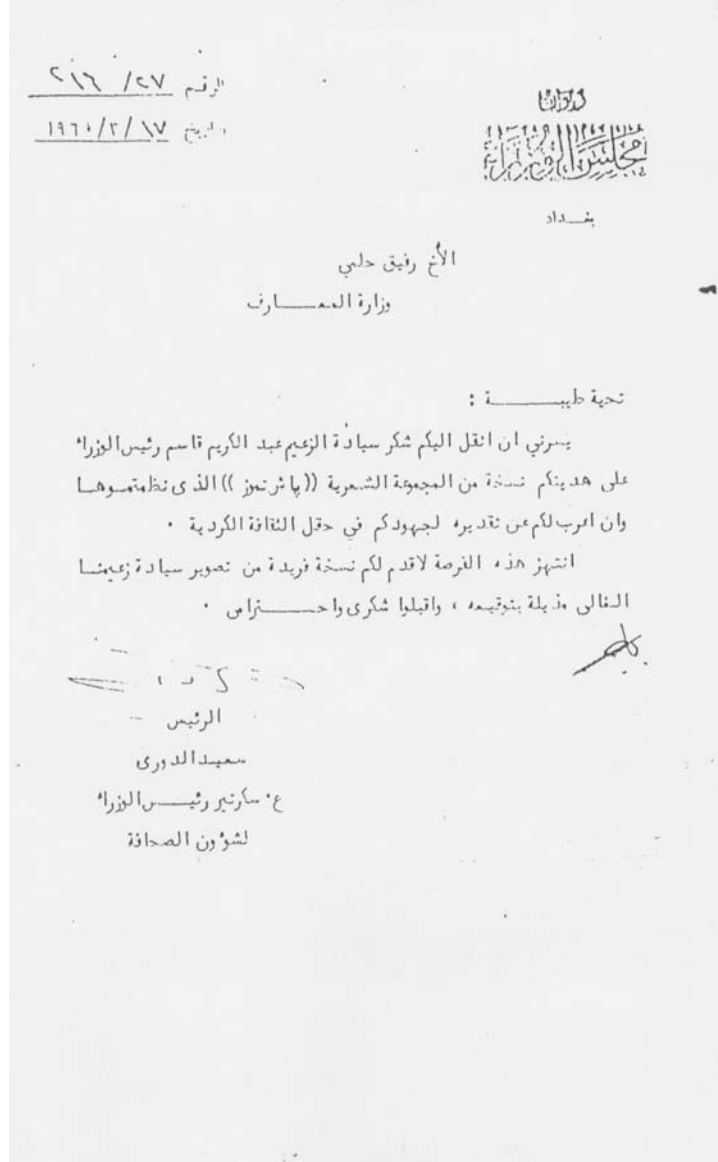 الرقم ٢٧/ ٢١٦
التاريخ ١٧/ ٢/ ١٩٦٠
ديوان
مجلس الوزراء
بغـــداد
الأخ رفيق حلمي
وزارة المعـــــارف
تحية طيبـــــــة :
يسرني ان انقل اليكم شكر سيادة الزعيم عبد الكريم قاسم رئيس الوزراء
على هديتكم نسخة من المجموعة الشعرية ((پاش تموز)) الذى نظمتمـــوهـــا
وان اعرب لكم عن تقديره لجهودكم في حقل الثقافة الكردية ٠
انتهز هذه الفرصة لاقدم لكم نسخة فريدة من تصوير سيادة زعيمنـــا
الغالى مذيلة بتوقيعه ، واقبلوا شكرى واحـــــــتراس ٠
الرئيس
سعيد الدورى
ع٠ سكرتير رئيـــــس الوزراء
لشؤون الصحافة